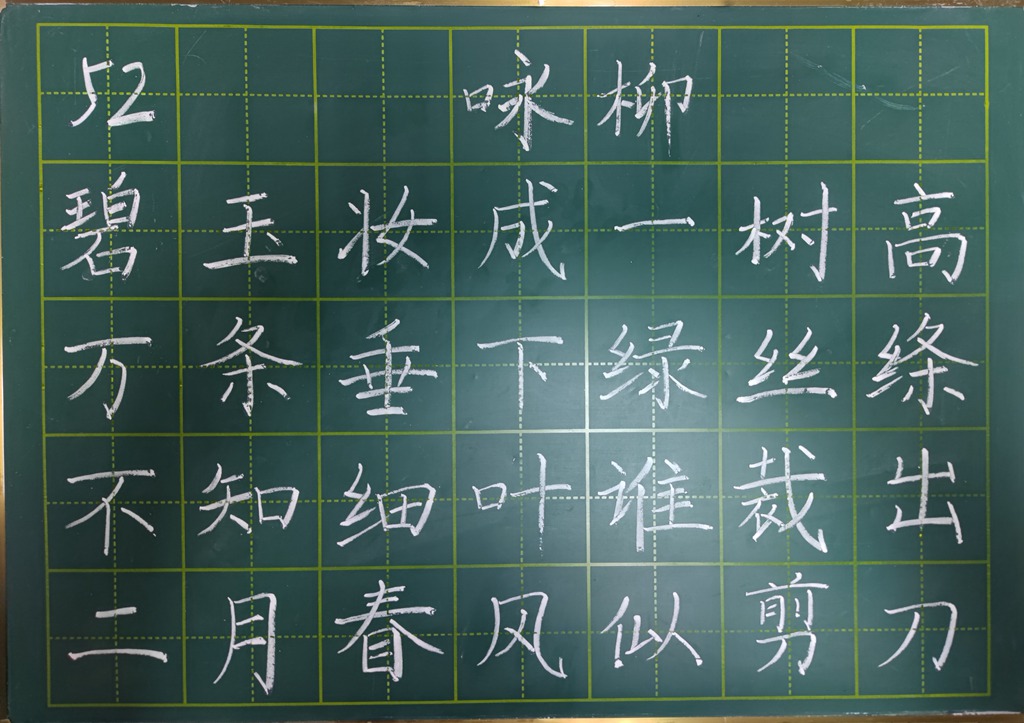 52 咏柳
碧玉妆成一树高
万条垂下绿丝绦
不知细叶谁裁出
二月春风似剪刀